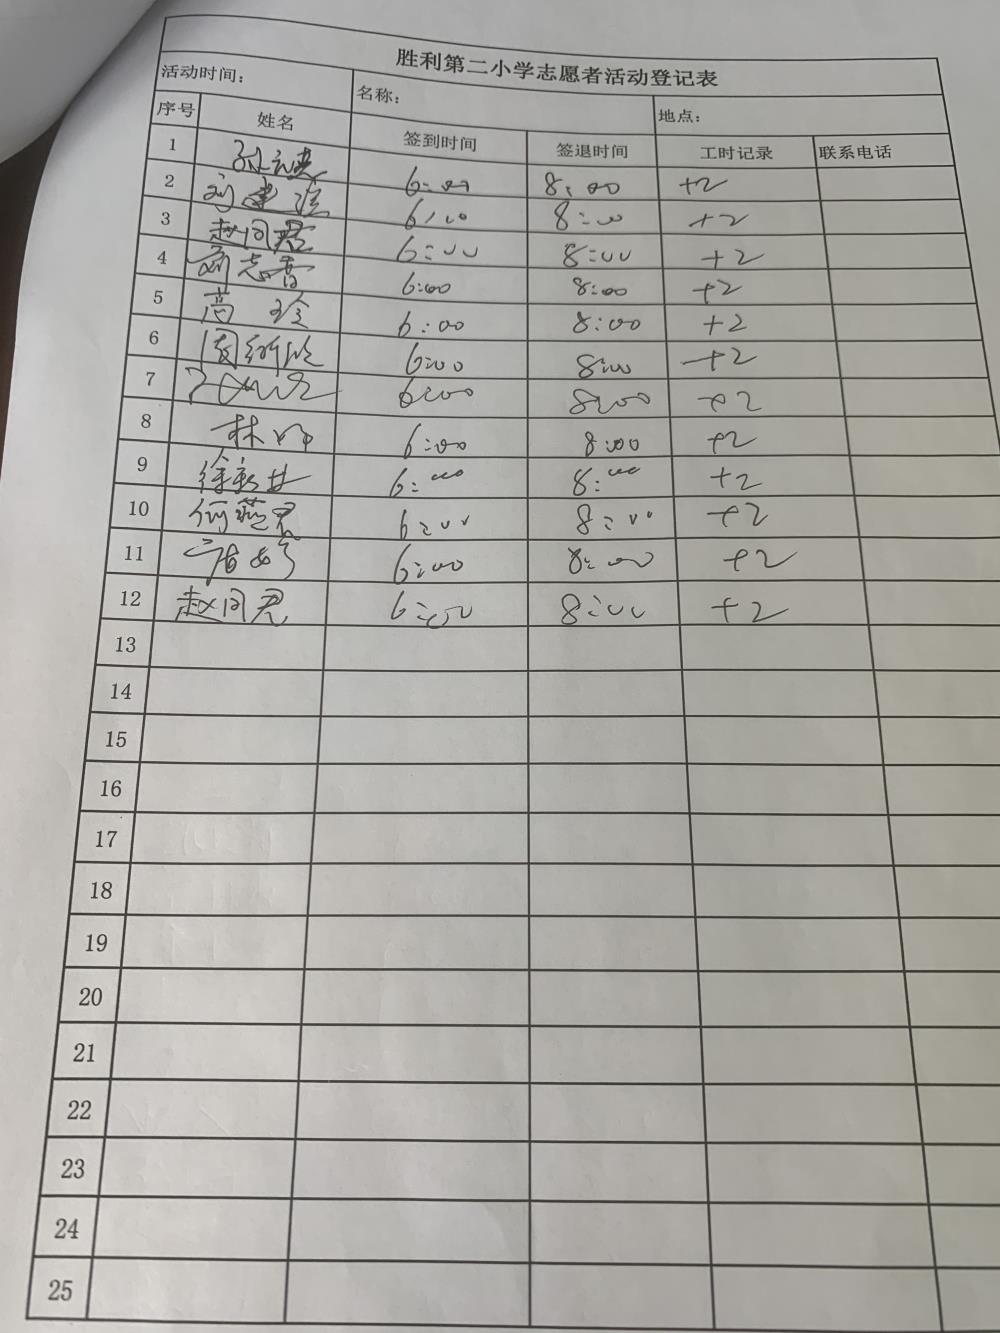 胜利第二小学志愿者活动登记表
活动时间： 名称： 地点：
序号 姓名 签到时间 签退时间 工时记录 联系电话
1 6:00 8:00 +2
2 刘建 6:00 8:00 +2
3 赵同君 6:00 8:00 +2
4 刘志香 6:00 8:00 +2
5 尚珍 6:00 8:00 +2
6 6:00 8:00 +2
7 6:00 8:00 +2
8 林 6:00 8:00 +2
9 徐 6:00 8:00 +2
10 何 君 6:00 8:00 +2
11 6:00 8:00 +2
12 赵同君 6:00 8:00 +2
13
14
15
16
17
18
19
20
21
22
23
24
25